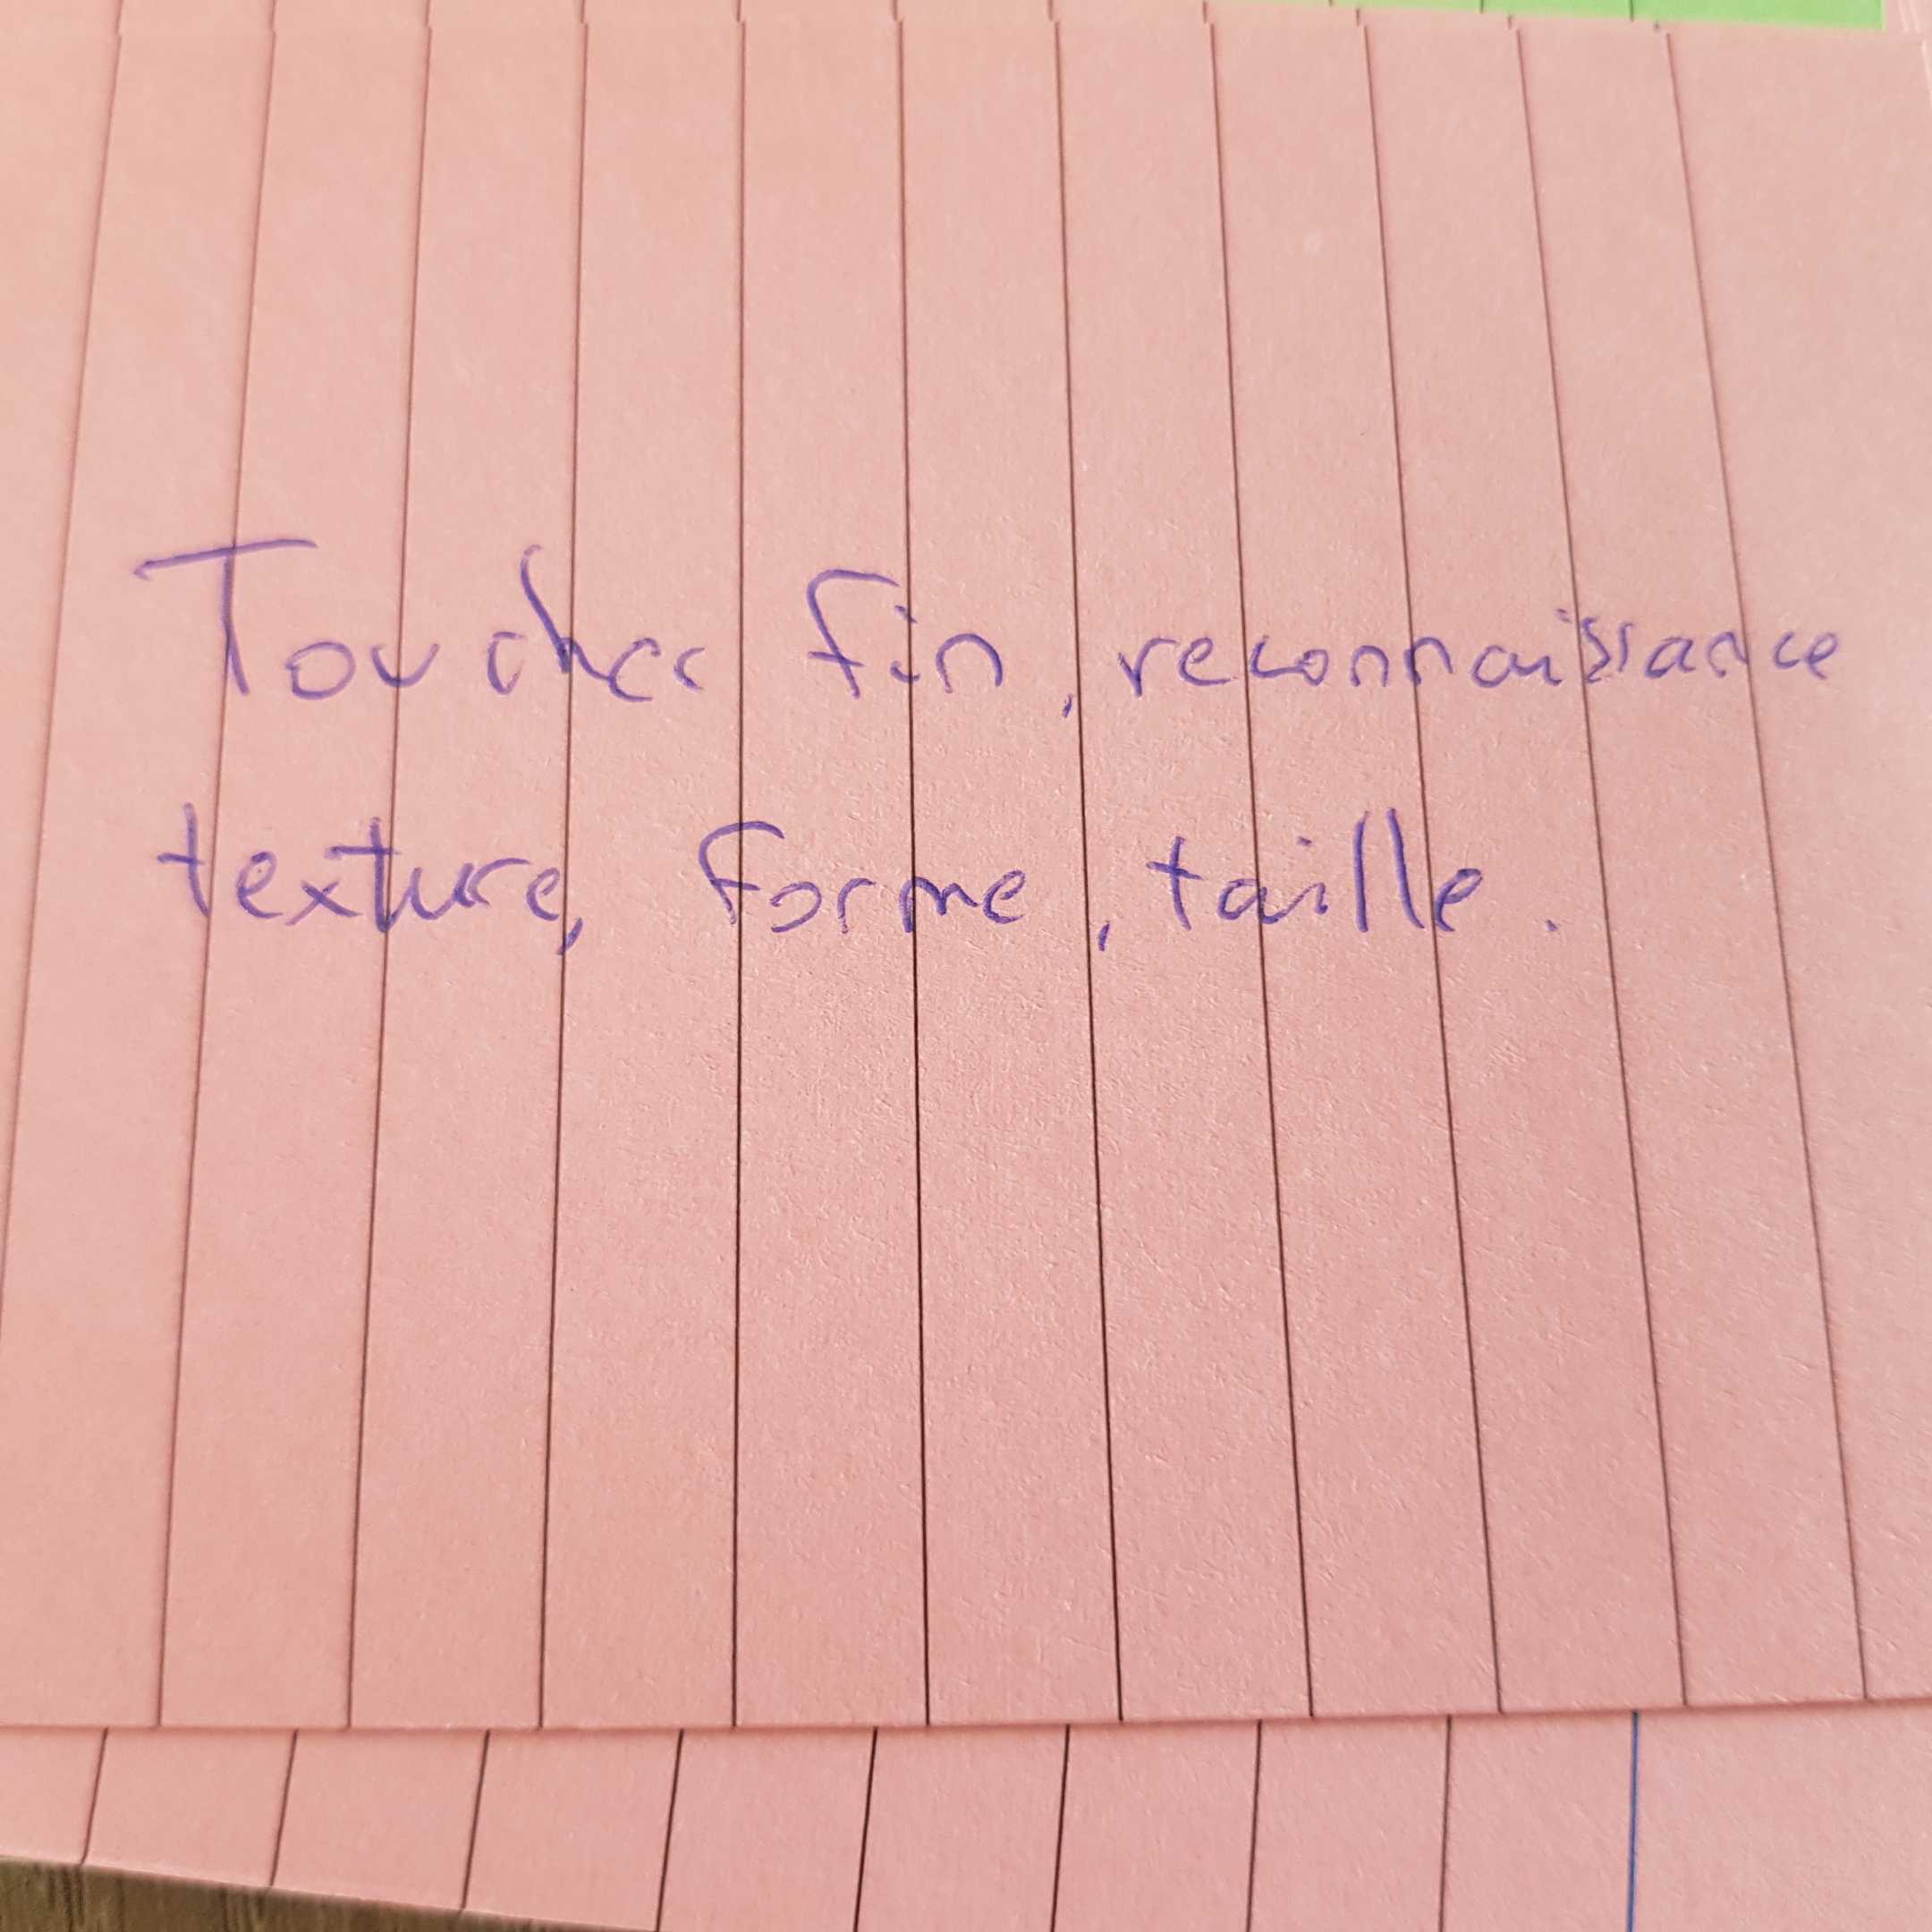 Toucher fin, reconnaissance
texture, forme, taille.